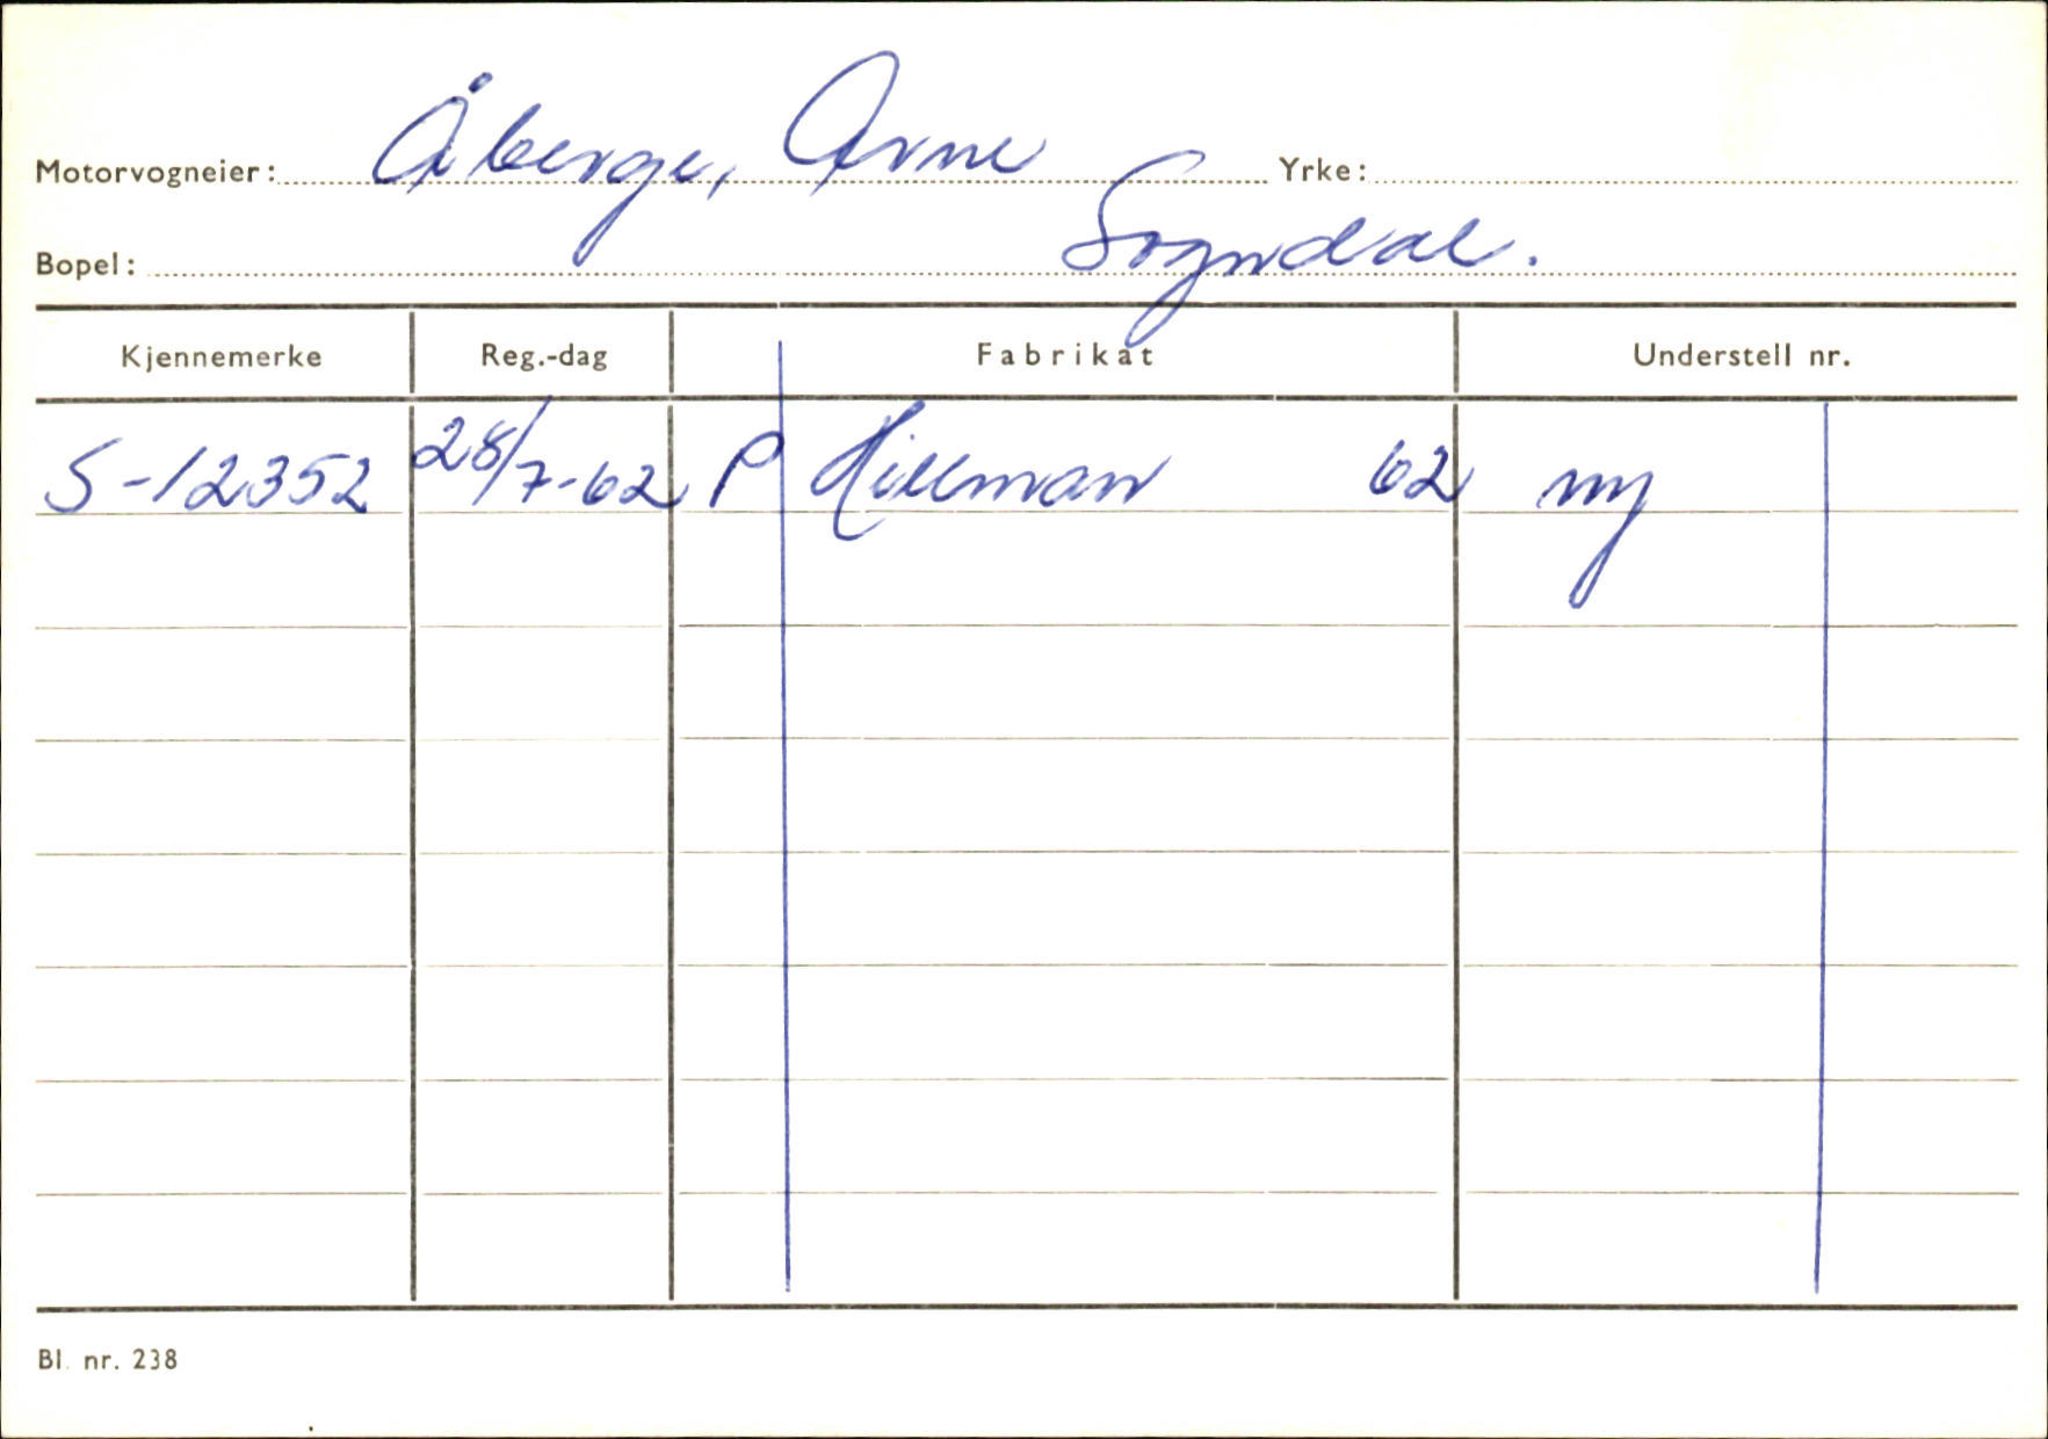 Motorvogneier: Åberge, Arne Yrke:
Bopel: Sogndal.
Kjennemerke Reg.-dag Fabrikat Understell nr.
S-12352 28/7-62 P Hillman 62 ny
Bl. nr. 238